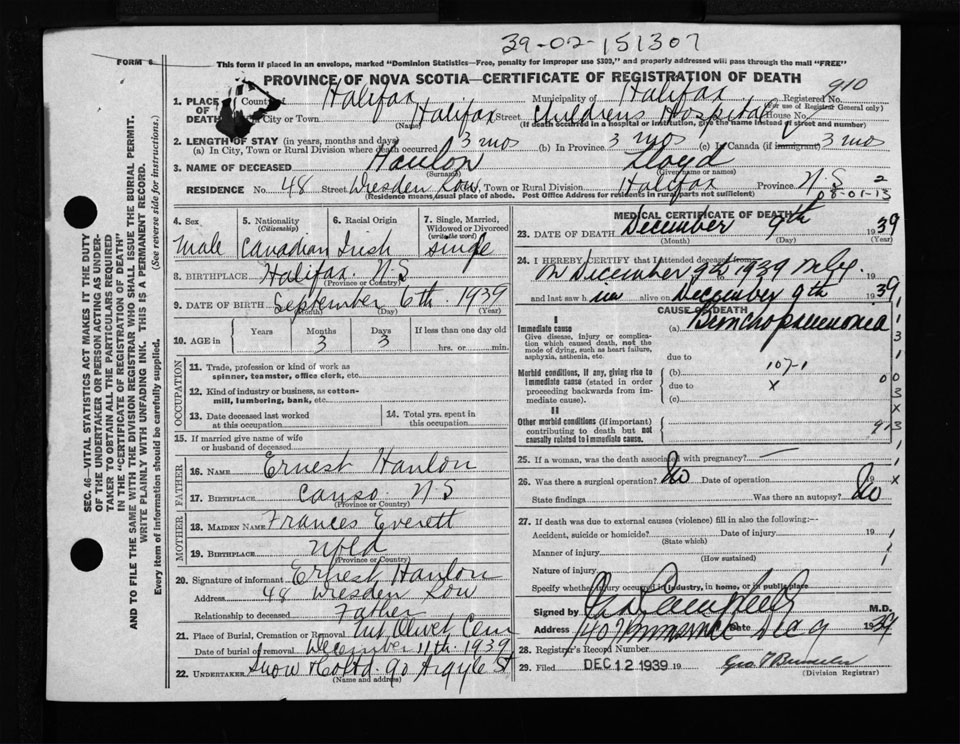 39-02-151307
FORM 6
This form if placed in an envelope, marked "Dominion Statistics—Free, penalty for improper use $300," and properly addressed will pass through the mail "FREE"
PROVINCE OF NOVA SCOTIA—CERTIFICATE OF REGISTRATION OF DEATH
910
1. PLACE OF DEATH County of Halifax Municipality of Halifax Registered No. (For use of Registrar General only)
City or Town Halifax (Name) Street Childrens Hospital House No.
(If death occurred in a hospital or institution, give the name instead of street and number)
2. LENGTH OF STAY (in years, months and days)
(a) In City, Town or Rural Division where death occurred 3 mos (b) In Province 3 mos (c) In Canada (if immigrant) 3 mos
3. NAME OF DECEASED Hanlon (Surname) Lloyd (Given name or names)
RESIDENCE No. 48 Street Dresden Row City, Town or Rural Division Halifax Province N.S. 2
(Residence means usual place of abode. Post Office Address for Residents in rural parts not sufficient) 08-01-13
4. Sex Male
5. Nationality (Citizenship) Canadian
6. Racial Origin Irish
7. Single, Married, Widowed or Divorced (write the word) single
8. BIRTHPLACE Halifax. N.S (Province or Country)
9. DATE OF BIRTH September 6th. 1939 (Month) (Day) (Year)
10. AGE in Years Months 3 Days 3 If less than one day old hrs. or min.
OCCUPATION
11. Trade, profession or kind of work as spinner, teamster, office clerk, etc.
12. Kind of industry or business, as cotton-mill, lumbering, bank, etc.
13. Date deceased last worked at this occupation
14. Total yrs. spent in this occupation
15. If married give name of wife or husband of deceased
FATHER
16. NAME Ernest Hanlon
17. BIRTHPLACE Canso N.S (Province or Country)
MOTHER
18. MAIDEN NAME Frances Everett
19. BIRTHPLACE Nfld (Province or Country)
20. Signature of informant Ernest Hanlon
Address 48 Dresden Row
Relationship to deceased Father
21. Place of Burial, Cremation or Removal Mt Olivet Cem
Date of burial or removal December 11th. 1939
22. UNDERTAKER Snow & Co Ltd 90 Argyle St
(Name and address)
MEDICAL CERTIFICATE OF DEATH
23. DATE OF DEATH December 9th 1939 (Month) (Day) (Year)
24. I HEREBY CERTIFY that I attended deceased from
on December 9th 1939 only. 19
and last saw him alive on December 9th 1939
CAUSE OF DEATH
I
Immediate cause
Give disease, injury or complication which caused death, not the mode of dying, such as heart failure, asphyxia, asthenia, etc.
(a) Bronchopneumonia
due to
Morbid conditions, if any, giving rise to immediate cause (stated in order proceeding backwards from immediate cause).
(b) 107-1
due to x
(c)
II
Other morbid conditions (if important) contributing to death but not causally related to immediate cause.
913
25. If a woman, was the death associated with pregnancy? —
26. Was there a surgical operation? No Date of operation 19
State findings Was there an autopsy? No
27. If death was due to external causes (violence) fill in also the following:—
Accident, suicide or homicide? Date of injury 19
(State which)
Manner of injury
(How sustained)
Nature of injury
Specify whether injury occurred in industry, in home, or in public place
Signed by Campbell M.D.
Address 140 Date Dec 9 1939
28. Registrar's Record Number
29. Filed DEC 12 1939 19
(Division Registrar)
SEC. 46—VITAL STATISTICS ACT MAKES IT THE DUTY
OF THE UNDERTAKER OR PERSON ACTING AS UNDER-
TAKER TO OBTAIN ALL THE PARTICULARS REQUIRED
IN THE "CERTIFICATE OF REGISTRATION OF DEATH"
AND TO FILE THE SAME WITH THE DIVISION REGISTRAR WHO SHALL ISSUE THE BURIAL PERMIT.
WRITE PLAINLY WITH UNFADING INK. THIS IS A PERMANENT RECORD.
Every item of information should be carefully supplied. (See reverse side for instructions.)